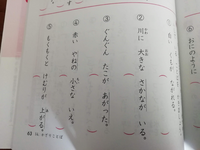 ⑥おにのように
② 川に 大きな さかなが いる。
③ ぐんぐん たこが あがった。
④ 赤い やねの 小さな いえ。
⑤ もくもくと けむりが 上がる。